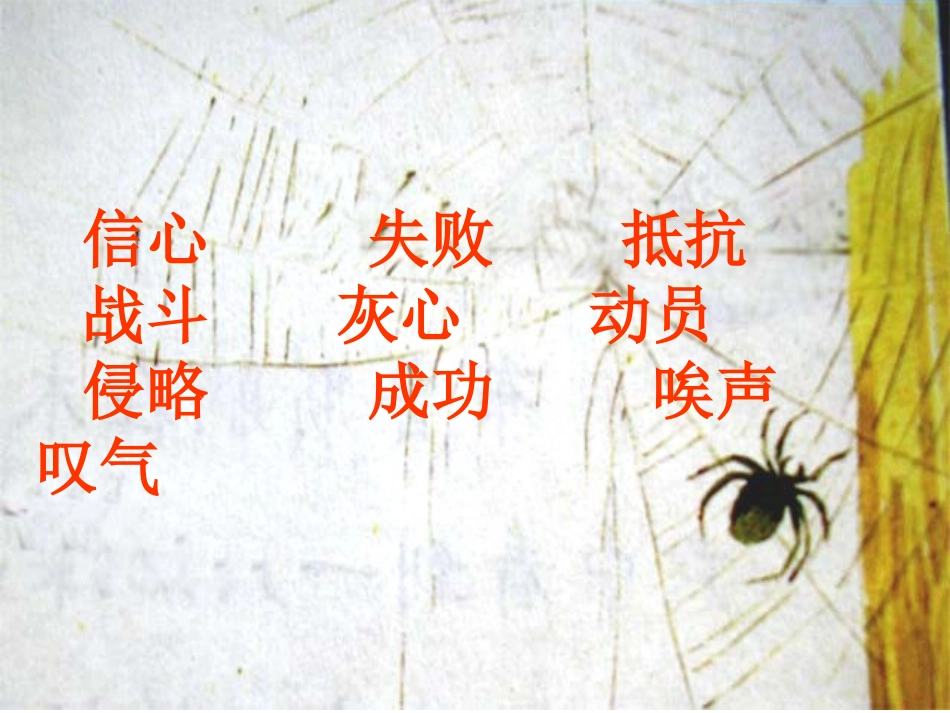 信心 失败 抵抗
战斗 灰心 动员
侵略 成功 唉声
叹气